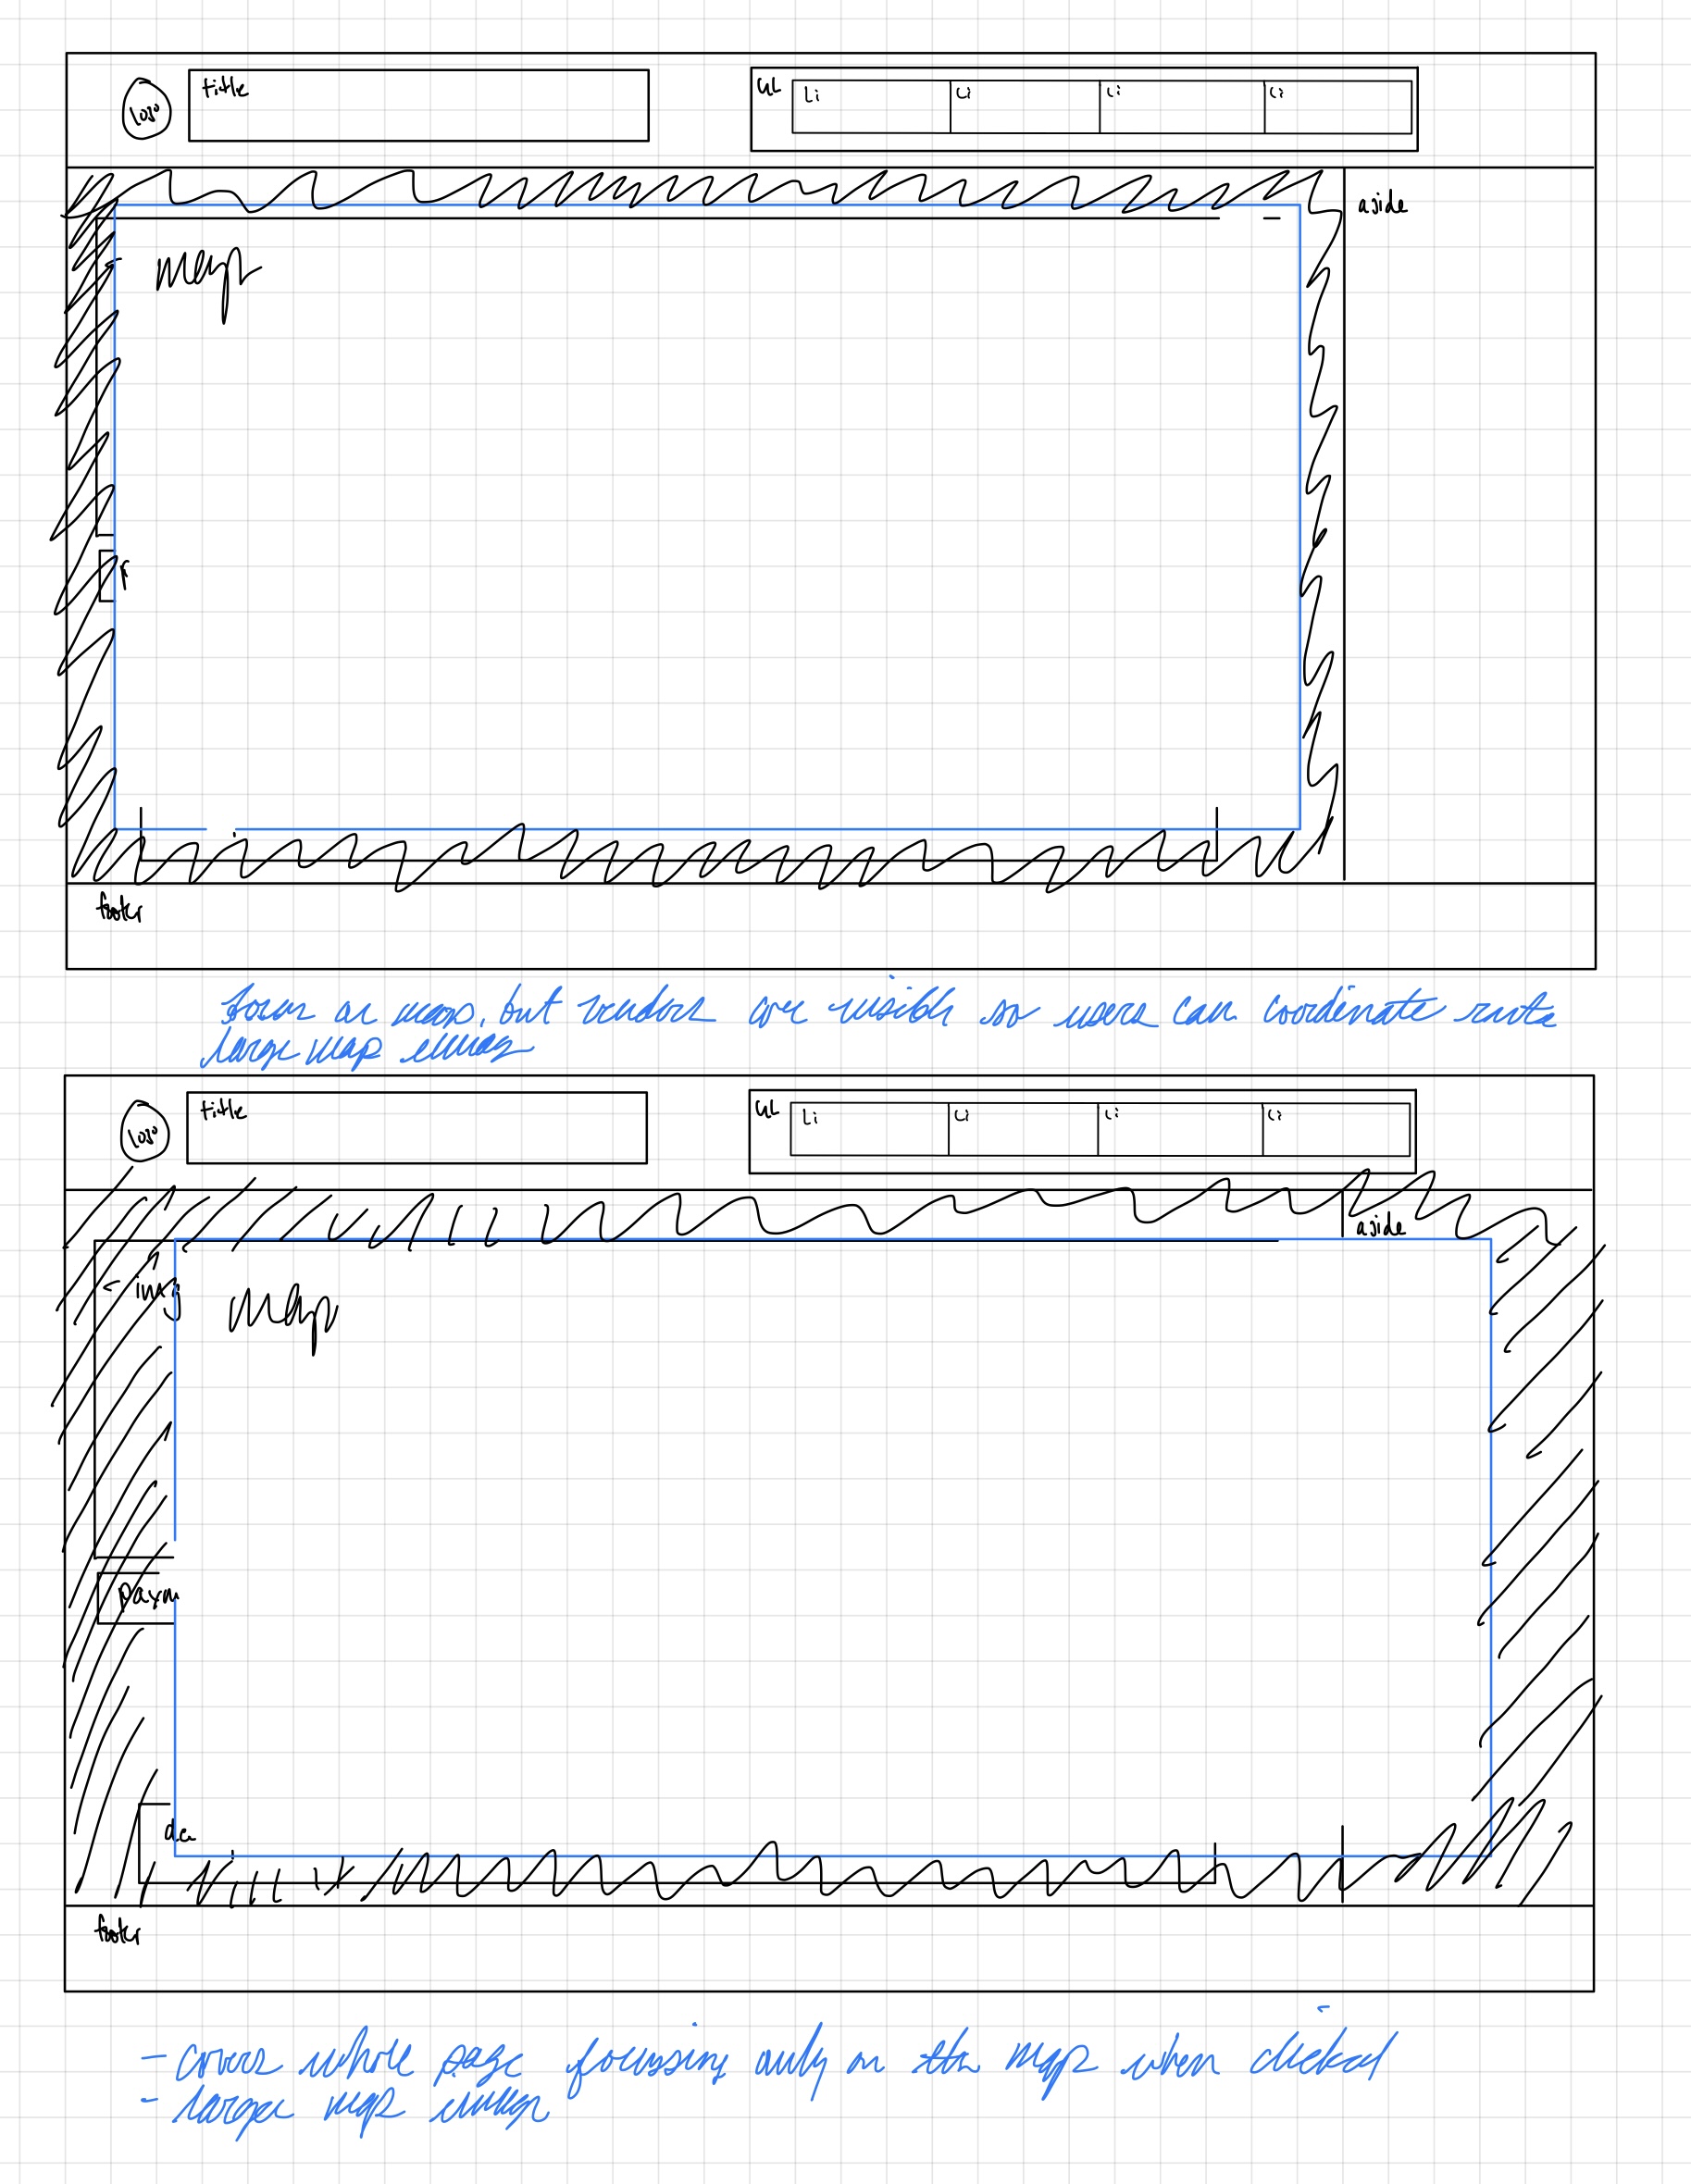 logo
title
UL
Li
Li
Li
Li
aside
map
footer
focus on map, but vendors are visible so users can coordinate route
large map image
logo
title
UL
Li
Li
Li
Li
aside
img
map
param
de
footer
- covers whole page focussing only on the map when clicked
- larger map image